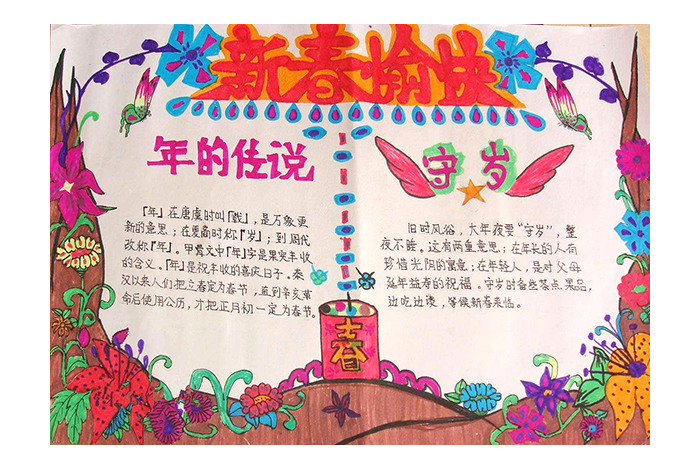 新春愉快
年的传说
「年」在唐虞时叫「载」,是万象更
新的意思;在夏商时称「岁」;到周代
改称「年」。甲骨文中「年」字是果实丰收
的含义。「年」是祝丰收的喜庆日子。秦
汉以来人们把立春定为春节,直到辛亥革
命后使用公历,才把正月初一定为春节。
守岁
旧时风俗,大年夜要“守岁”,整
夜不睡。这有两重意思;在年长的人有
珍惜光阴的寓意;在年轻人,是对父母
延年益寿的祝福。守岁时备些茶点果品,
边吃边谈,等候新春来临。
春